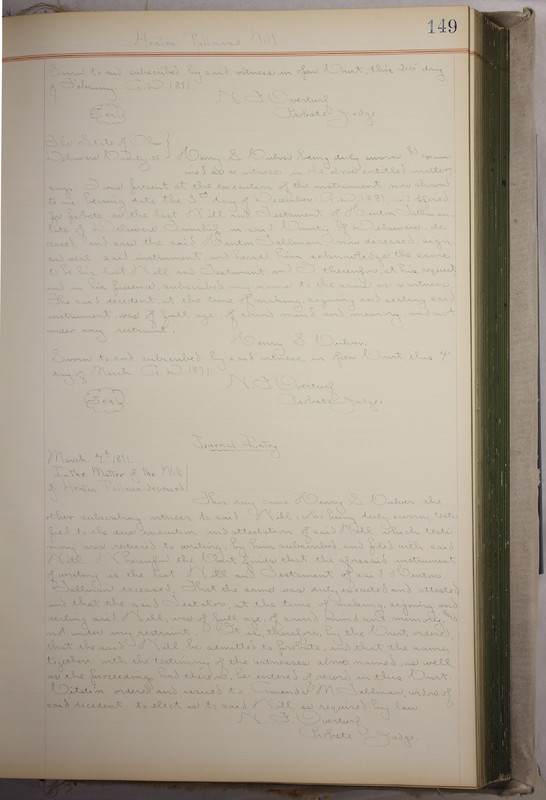 149
Will
Sworn to and subscribed by said witness in open Court, this 26 day
of February A.D. 1891.
N. F. Overturf
Probate Judge
Seal
The State of Ohio }
Delaware County, ss Henry S. Culver being duly sworn & exam-
ined as a witness in the above entitled matter
says: I was present at the execution of the instrument now shown
to me, bearing date the 3rd day of December A.D. 1881 and offered
for probate as the last Will and Testament of
late of Delaware Township in said County of Delaware, de-
ceased, and saw the said now deceased, sign
and seal said instrument, and heard him acknowledge the same
to be his last Will and Testament and I therefore, at his request
and in his presence, subscribed my name to the same as a witness.
The said decedent, at the time of making, signing and sealing said
instrument, was of full age, of sound mind and memory, and not
under any restraint.
Henry S. Culver.
Sworn to and subscribed by said witness in open Court this 4th
day of March A.D. 1891.
N. F. Overturf
Probate Judge.
Seal
Journal Entry
March 4th 1891.
In the Matter of the Will
of deceased
This day came Henry S. Culver, the
other subscribing witness to said Will, who being duly sworn, testi-
fied to the due execution and attestation of said Will which testi-
mony was reduced to writing, by him subscribed and filed with said
Will. Thereupon the Court finds that the aforesaid instrument
of writing is the last Will and Testament of said
deceased; that the same was duly executed and attested
and that the said Testator, at the time of making, signing and
sealing said Will, was of full age, of sound mind and memory, and
not under any restraint. It is, therefore, by the Court, ordered
that the said Will be admitted to probate, and that the same,
together with the testimony of the witnesses above named, as well
as the proceedings had thereon, be entered of record in this Court.
Citation ordered and issued to Amanda M. widow of
said decedent to elect as to said Will, as required by law
N. F. Overturf
Probate Judge.